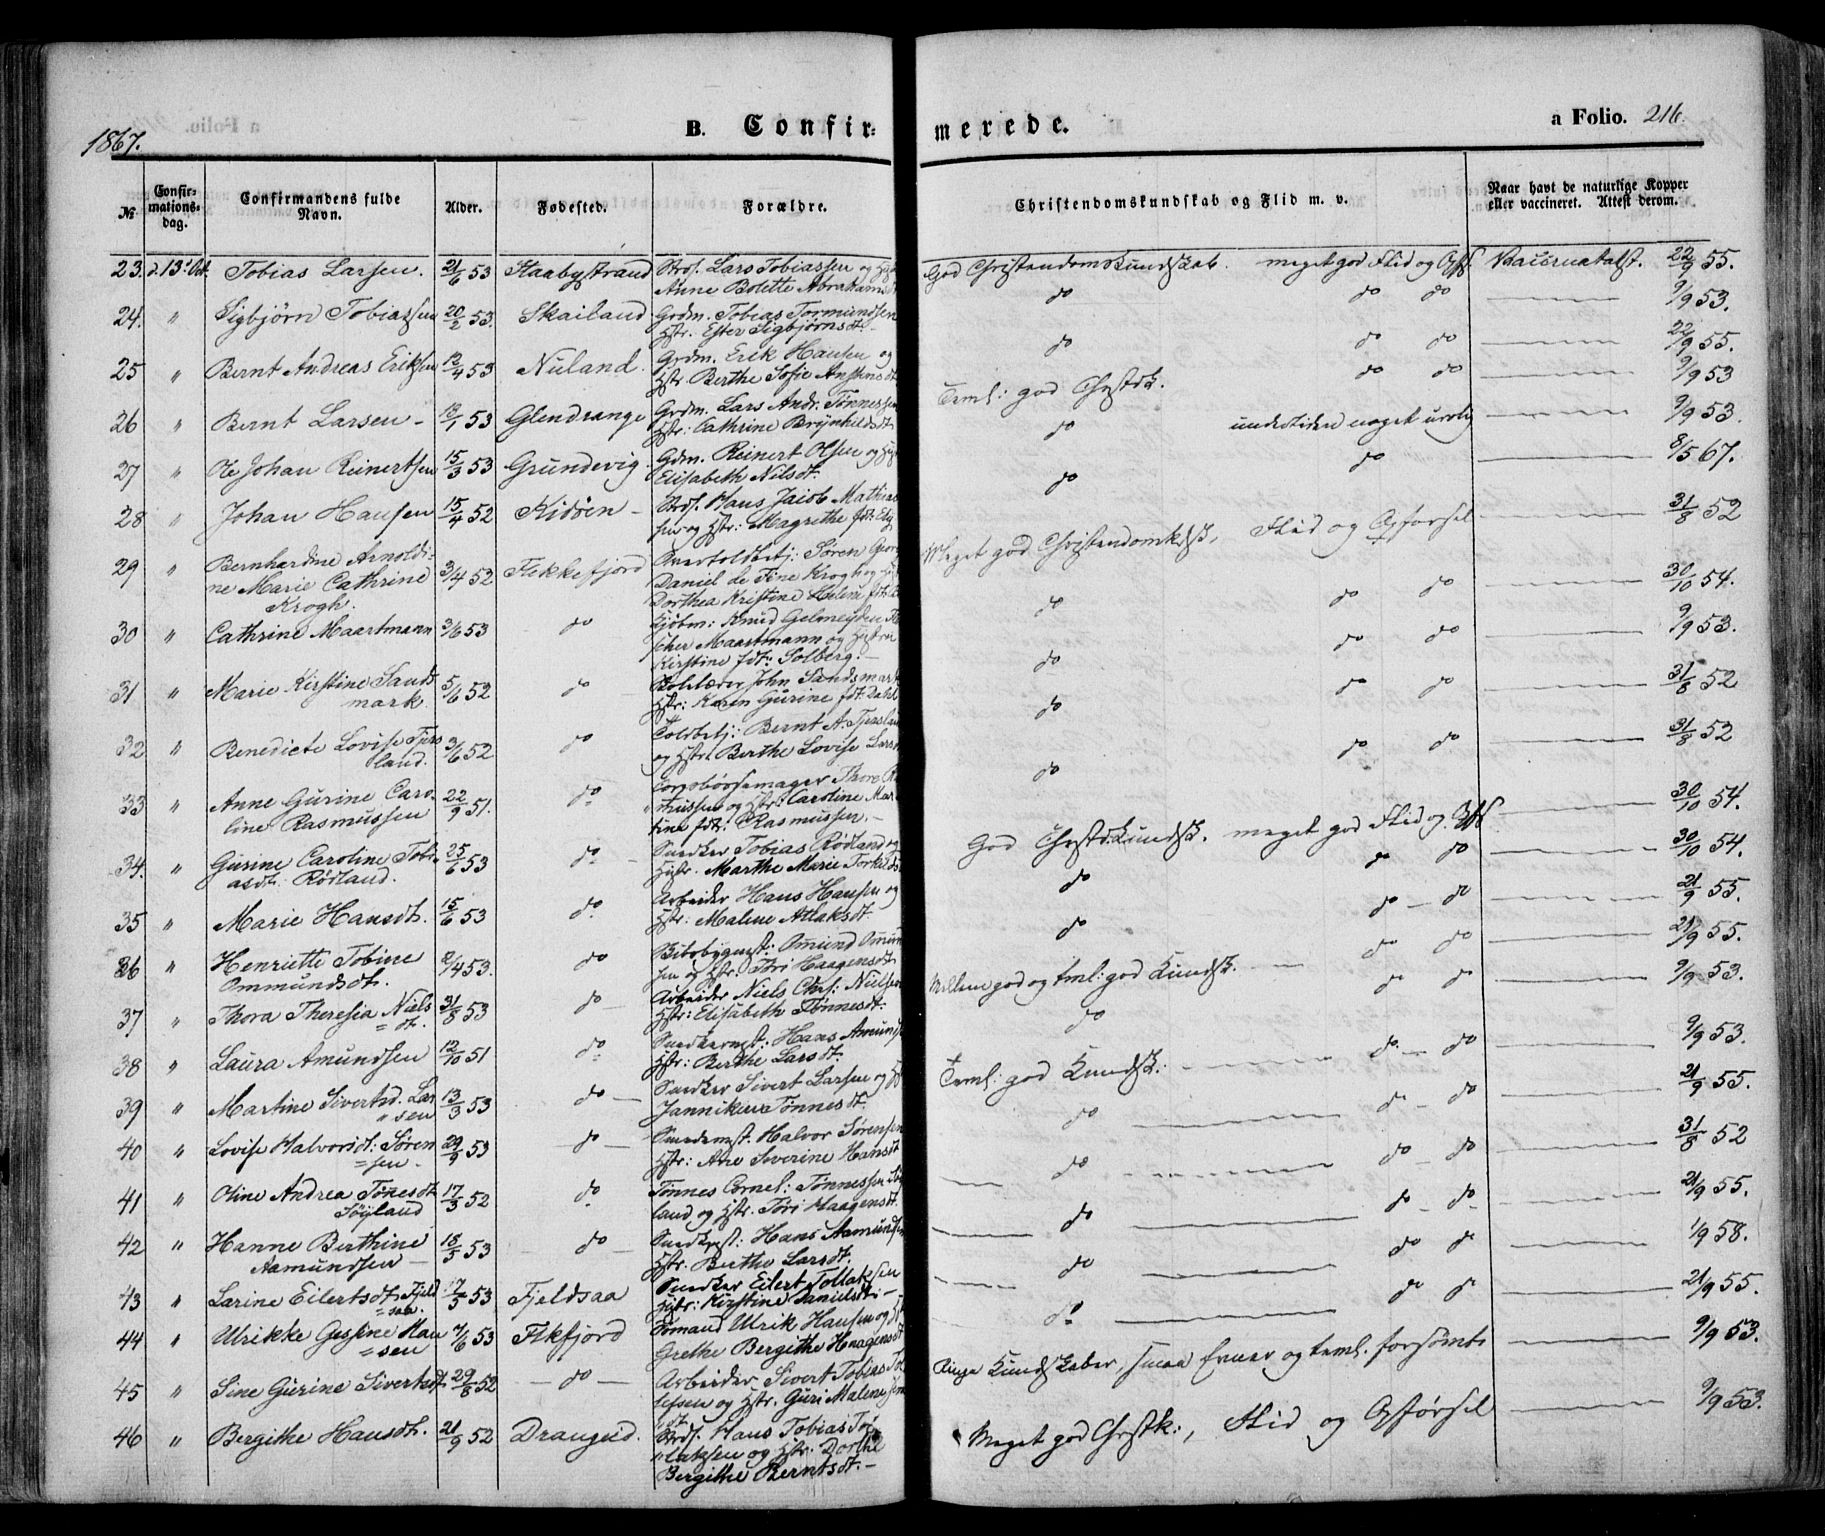 1867.
B. Confir-
merede.
a Folio. 216.
№
Confir-
mations-
dag.
Confirmandens fulde
Navn.
Alder.
Fødested.
Forældre.
Christendomskundskab og Flid m. v.
Naar havt de naturlige Kopper
eller vaccineret. Attest derom.
23. d. 13' Oct. Tobias Larsen. 21/6 53 Haabystrand Strds. Lars Tobiassen og
Anne Bolette Abrahamsdt
God Christendomskundskab. meget god Flid og Opfs. Vaccinatatst. 22/9 55.
24. " Sigbjørn Tobiassen 20/2 53. Skailand Grdm. Tobias Tormundsen
Hstr. Ester Sigbjørnsdt.
do do do 9/9 53.
25 " Bernt Andreas Eriksen 12/4 53 Nuland. Grdm. Erik Hansen og
Hstr. Berthe Sofie Anstensdt
do do do 22/9 55.
26 " Bernt Larsen - 12/1 53 Glendrange Grdm. Lars Andr. Tønnessen
Hstr: Cathrine Brynhildsdt
Teml: god Chrstdk. do do 9/9 53
27 " Ole Johan Reinertsen 15/3 53 Grundevig Gdm. Reinert Olsen og
Elisabeth Nilsdt.
do undertiden noget urolig 9/9 53.
28 " Johan Hansen 15/4 52 Kidøen - Strds. Hans Jacob Mathias
sen og Hstr: Magrethe fdt:
do do 8/5 67.
29 " Bernhardine Arnoldi-
ne Marie Cathrine
Krogh. 3/4 52 Flekkefjord Overtoldbetj: Søren Georg
Daniel de Fine Krogh og
Dorthea Kristine Helene fdt:
Meget god Christendomkdsk, Flid og Opførsel 31/8 52
30 " Cathrine Maartmann 3/6 53 do Kjøbm: Knud Gelmeyden
scher Maartmann og Hstru
Kirstine fdt: Solberg. -
do do do 30/10 54.
31 " Marie Kirstine Sands
mark 5/6 52 do John Sandsmark
Hstr: Karen Gurine fdt: Dahl
do do do 9/9 53.
32 " Benedicte Lovise Tjers
land. 3/6 52 do Toldbetj: Bernt A. Tjersland
og Hstr. Berthe Lovise Lars
do do do 31/8 52
33 " Anne Gurine Caro-
line Rasmussen 22/9 51. do Corpsbørsemager Thore
mussen og Hstr: Caroline Mar
tine fdt: Rasmussen. -
do do do 31/8 52
34. " Gurine Caroline Tobi-
asdt. Rødland. 25/6 53 do Snedker Tobias Rødland og
Hstr. Marthe Marie Torkilds
God Chrstdkundsk. meget god Flid og Opfs 30/10 54.
35 " Marie Hansdt. 15/6 53 do Arbeider Hans Hansen og
Hstr: Malene Atlaksdt.
do do do 30/10 54.
36 " Henriette Tobine
Ommundsdt. 2/4 53. do Omund Omun
sen og Hstr. Tori Haagensdt.
do do - do 21/9 55.
37 " Thora Theresia Niels
dt. 31/8 53 do Arbeider Niels Chr: Nielsen
Hstr: Elisabeth Tønnesdt.
Mellem god og teml: god Kundsk. do do 21/9 55.
38 " Laura Amundsen 12/10 51 do Snedkermst: Hans Amunds
Hstr: Berthe Larsdt.
do do do 9/9 53.
39 " Martine Sivertsd. Lar
sen 13/3 53 do Snedker Sivert Larsen og
Janniken Tønnesdt.
Teml: god Kundsk. do do 9/9 53.
40 " Lovise Halvorsdt: Søren
sen - 29/9 53 do Smedemst. Halvor Sørensen
Hstr: Ane Severine Hansdt
do do - do 21/9 55.
41 " Oline Andrea Tønesdt
Søyland 17/3 52 do Tønnes Cornel: Tønnessen Søy
land og Hstr. Tori Haagensdt.
do do - do 31/8 52
42 " Hanne Berthine
Aamundsen 18/5 53 do Snedkmst: Hans Aamundsen
Hstr: Berthe Larsdt.
do do - do 21/9 55.
43 " Larine Eilertsdt. Fjeld
saa. 17/5 53 Fjeldsaa Snedker Eilert Tollaksen
Hstr: Kirstine Danielsdt. -
do do do 1/9 58.
44 " Ulrikke Gesine Han
sen 4/6 53 Flkfjord Sømand Ulrik Hansen og
Grethe Bergithe Haagensdt
do do do 21/9 55.
45 " Sine Gurine Sivertsdt 29/8 52 do Arbeider Sivert Tobias
lefsen og Hstr. Guri Malene
Ringe Kundskaber, smaa Evner og teml. forsømt 9/9 53.
46 " Bergithe Hansdt. 21/9 52 Draugud. Strds. Hans Tobias
laksen og Hstr. Dorthe
Bergithe Berntsdt. -
Meget god Chrstk:, Flid og Opførsel 9/9 53.